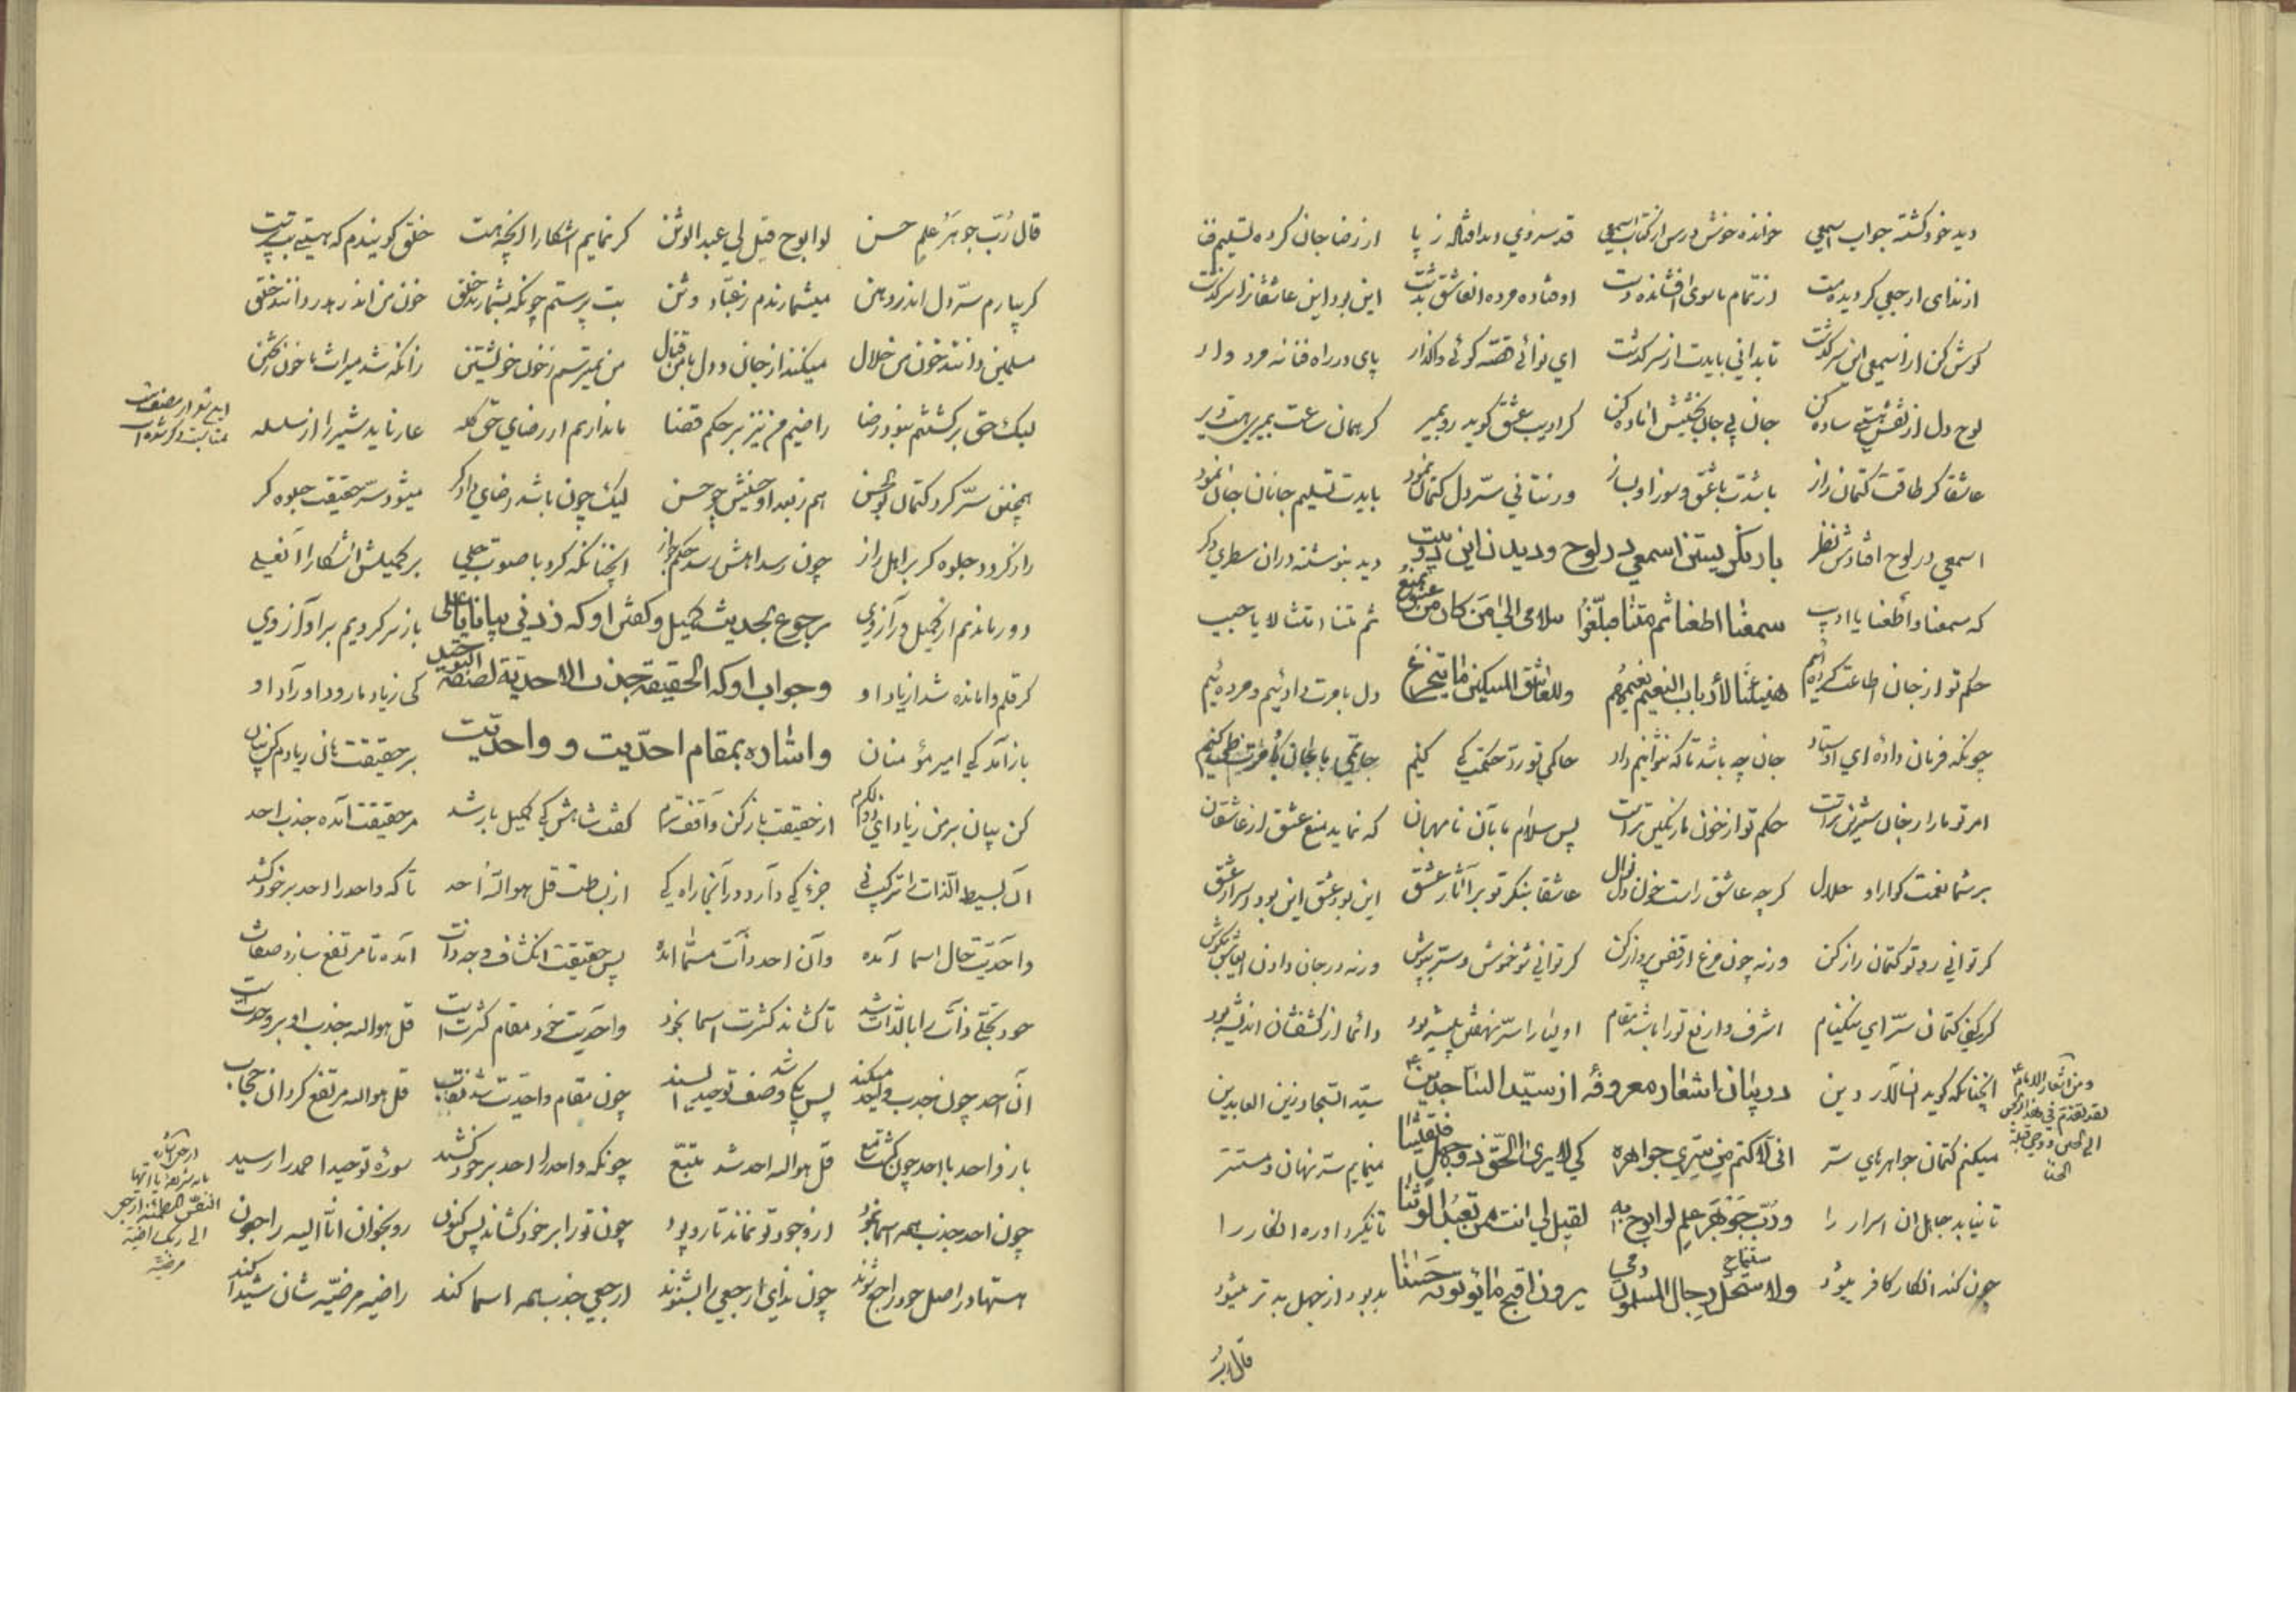 دید خود کشته جواب اسمعی خوانده خوش درس از کتاب اسمعی قد سروی دید افتاده ز پا از رضا جان کرده تسلیم قضا
از ندای ارجعی کردیده مست از تمام ماسوی افشانده دست اوفتاده مرده آن عاشق بدشت این بود این عاشقانرا سرکذشت
کوش کن از اسمعی این سرکذشت تا بدانی بایدت از سر کذشت ای نوائی قصه کوئی واکذار پای در راه فنا نه مرد وار
لوح دل از نقش هستی ساده کن جان پی جان بخشیش آماده کن کر ادیب عشق کوید رو بمیر کر همان ساعت بمیری بهتر
عاشقا کر طاقت کتمان راز باشدت با عشق و سوز او بساز ور نتانی سر دل کتمان نمود بایدت تسلیم جانان جان نمود
اسمعی در لوح افتادش نظر باز نکریستن اسمعی در لوح و دیدن این دو بیت دید بنوشته در ان سطری دکر
که سمعنا و أطعنا یا ادیب سمعنا اطعنا ثم متنا فبلّغوا سلامی الی من کان للعشق یمنع ثم متنا متنا لا یا حبیب
حکم تو از جان اطاعت کرده‌ایم هنیئا لأرباب النعیم نعیمهم وللعاشق المسکین ما یتجرع دل بامرت دادئیم و مرده‌ئیم
چونکه فرمان داده‌ای اوستاد جان چه باشد تا که نتوانیم داد حاکمی تو رد حکمت کی کنیم
امر تو ما را ز جان شیرین‌تر است حکم تو از خون ما رنکین‌تر است پس سلام ما بآن نامهربان که نماید منع عشق از عاشقان
بر شما نعمت کوارا و حلال کرچه عاشق راست خون دل نوال عاشقا بنکر تو بر آثار عشق این بود عشق این بود اسرار عشق
کر توانی رو تو کتمان راز کن ورنه چون مرغ از قفس پرواز کن کر توانی شو خموش و سر بپوش ورنه در جان دادن ای عاشق بکوش
کر کنی کتمان سر ای نیکنام اشرف و ارفع تو را باشد مقام اولیا را سر نهفتن پیشه بود دائما از کشفشان اندیشه بود
آنچنانکه کوید آن سالار دین در بیان اشعار معروفهٔ از سید الساجدین ع سید السجاد زین العابدین
میکنم کتمان جواهرهای سر انی لاکتم من سری جواهره کی لا یری الحق ذو جهل فیفتتنا مینمایم سر نهان و مستتر
تا نیابد جاهل ان اسرار را و رب جوهر علم لو ابوح به لقیل لی انت ممن تعبد الوثنا تا نکیرد او ره انکار را
چون کند انکار کافر میشود ولاستحل رجال المسلمون دمی یرون اقبح ما یأتونه حسنا بد بود از جهل بدتر میشود
قال رب
و من اشعار الامام ع
لقد تقدم فی هذا ابو حسن
الی الحسین و وصی قبله
الحسنا
قال رب جوهر علم حسن لو ابوح قیل لی عبد الوثن کر نمایم آشکارا آنچه هست خلق کویندم که هستی بت‌پرست
کر بیارم سر دل اندر دهن میشمارندم ز عباد وثن بت پرستم چونکه بشمارند خلق خون من اندر هدر دانند خلق
مسلمین دانند خون من حلال میکنند از جان و دل با من قتال من نمیترسم ز خون خویشتن زانکه شد میراث ما خون ریختن
لیک حق بر کشتنم نبود رضا راضیم من نیز بر حکم قضا ما نداریم از رضای حق کله عار ناید شیر را از سلسله
همچنین سر کرد کتمان بوالحسن هم ز بعد او حسینش چو حسن لیک چون باشد رضای دادکر میشود سر حقیقت جلوه کر
راز کردد جلوه کر بر اهل راز چون رسد اهلش رسد حکم جواز آنچنانکه کرد با صوت جلی بر کمیلش آشکارا آن علی
دور ماندیم از کمیل و آرزوی رجوع بحدیث کمیل و کفتن او که زدنی بیانا یا علی باز بر کردیم برا و آرزوی
کر قلم وامانده شد از یاد او و جواب او که الحقیقة جذب الاحدیة لصفة التوحید کی زیاد ما رود اوراد او
باز آمد کی امیر مؤمنان و اشاره بمقام احدیت و واحدیت بر حقیقت
کن بیان بر من زیاد ای ذو الکرم از حقیقت باز کن کفت شاهش کی کمیل با رشد مر حقیقت آمده جذب احد
آن بسیط الذات را ترکیب نی جزء کی دارد در آنجا راه کی از بساطت قل هو الله احد تا که واحد را احد بر خود کشد
واحدیت حال اسما آمده و آن احد ذات مسما آمده پس حقیقت انکشاف وجه ذات آمده تا مرتفع سازد صفات
خود تجلی ذات را بالذات شد تا کشاند کثرت اسما بخود واحدیت خود مقام کثرت است قل هو الله جذب او بر وحدت است
آن احد چون جذب واحد میکند پس یکی وصف توحید چون مقام واحدیت شد نقاب قل هو الله مرتفع کرد آن حجاب
باز واحد با احد چون کشت جمع قل هو الله احد شد متبع چونکه واحد را احد بر خود کشید سوره توحید احمد را رسید
چون احد جذب همه اسما نمود از وجود تو نماند تار و پود چون تو را بر خود کشاند پس کنون رو بخوان انا الیه راجعون
اسمها در اصل خود راجع شوند چون ندای ارجعی را بشنوند ارجعی جذب همه اسما کند راضیه مرضیه شان شیدا کند
یا ایتها
النفس المطمئنة ارجعی
الی ربک راضیة
مرضیة